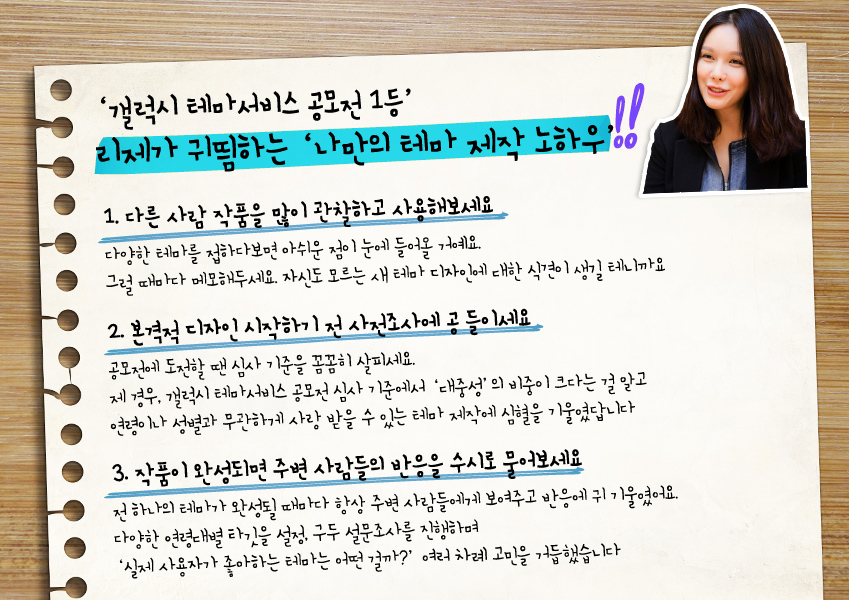 ‘갤럭시 테마서비스 공모전 1등’
리제가 귀띔하는 ‘나만의 테마 제작 노하우’!!
1. 다른 사람 작품을 많이 관찰하고 사용해보세요
다양한 테마를 접하다보면 아쉬운 점이 눈에 들어올 거예요.
그럴 때마다 메모해두세요. 자신도 모르는 새 테마 디자인에 대한 식견이 생길 테니까요
2. 본격적 디자인 시작하기 전 사전조사에 공 들이세요
공모전에 도전할 땐 심사 기준을 꼼꼼히 살피세요.
제 경우, 갤럭시 테마서비스 공모전 심사 기준에서 ‘대중성’의 비중이 크다는 걸 알고
연령이나 성별과 무관하게 사랑 받을 수 있는 테마 제작에 심혈을 기울였답니다
3. 작품이 완성되면 주변 사람들의 반응을 수시로 물어보세요
전 하나의 테마가 완성될 때마다 항상 주변 사람들에게 보여주고 반응에 귀 기울였어요.
다양한 연령대별 타깃을 설정, 구두 설문조사를 진행하며
‘실제 사용자가 좋아하는 테마는 어떤 걸까?’ 여러 차례 고민을 거듭했습니다